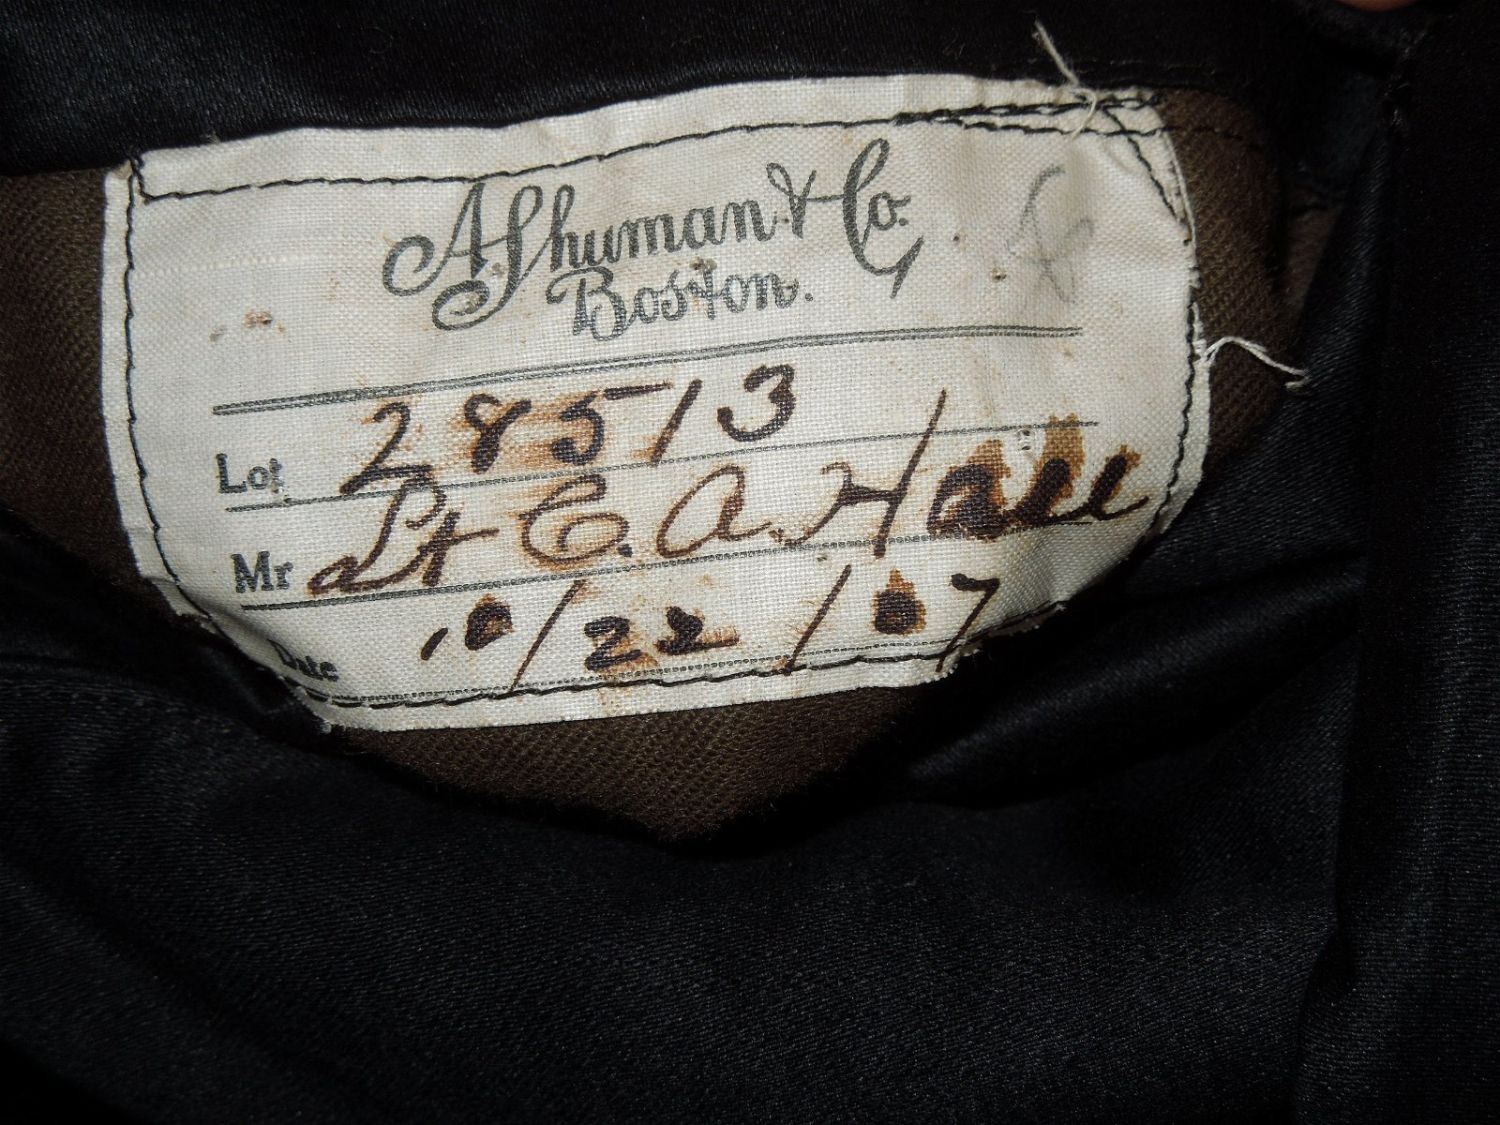 A Shuman & Co.
Boston.
Lot 28513
Mr Lt C. A. Hall
Date 10/22/07